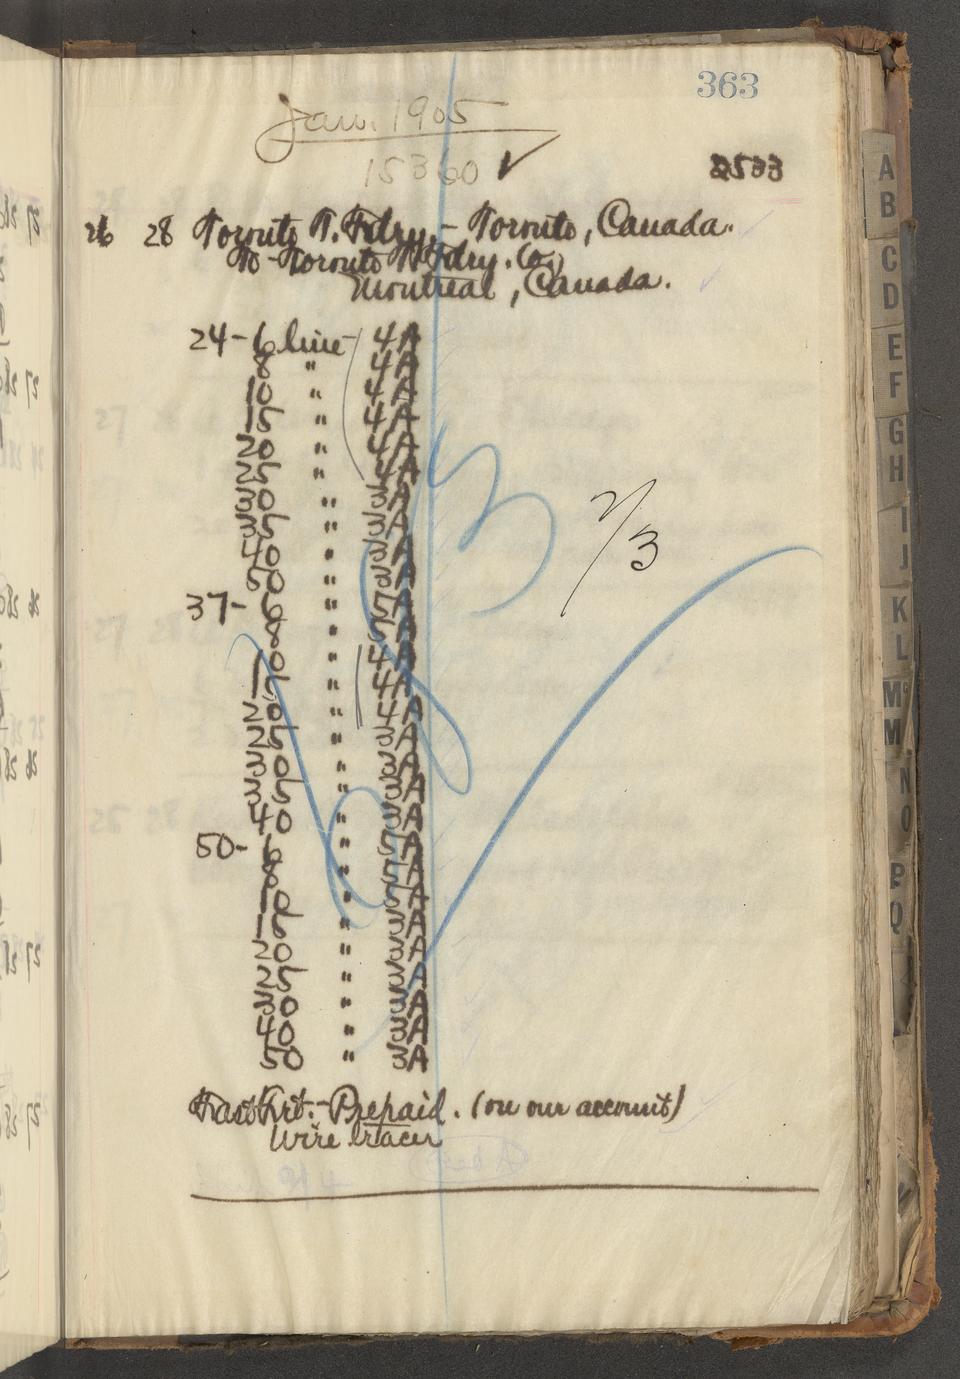 363
Jan. 1905
15360 ✓
2533
26 28 Toronto T. Fdry. - Toronto, Canada.
To - Toronto T. Fdry. Co.,
Montreal, Canada.
24 - 6 line - 4A
8 " 4A
10 " 4A
15 " 4A
20 " 4A
25 " 4A
30 " 3A
35 " 3A
40 " 3A
50 " 3A
37 - 6 " 5A
8 " 5A
10 " 4A
15 " 4A
20 " 4A
25 " 3A
30 " 3A
35 " 3A
40 " 3A
50 - 6 " 5A
8 " 5A
10 " 5A
15 " 3A
20 " 3A
25 " 3A
30 " 3A
40 " 3A
50 " 3A
2/3
Fast Frt. - Prepaid. (on our account)
Wire tracer
A
B
C
D
E
F
G
H
I
J
K
L
Mc
M
N
O
P
Q